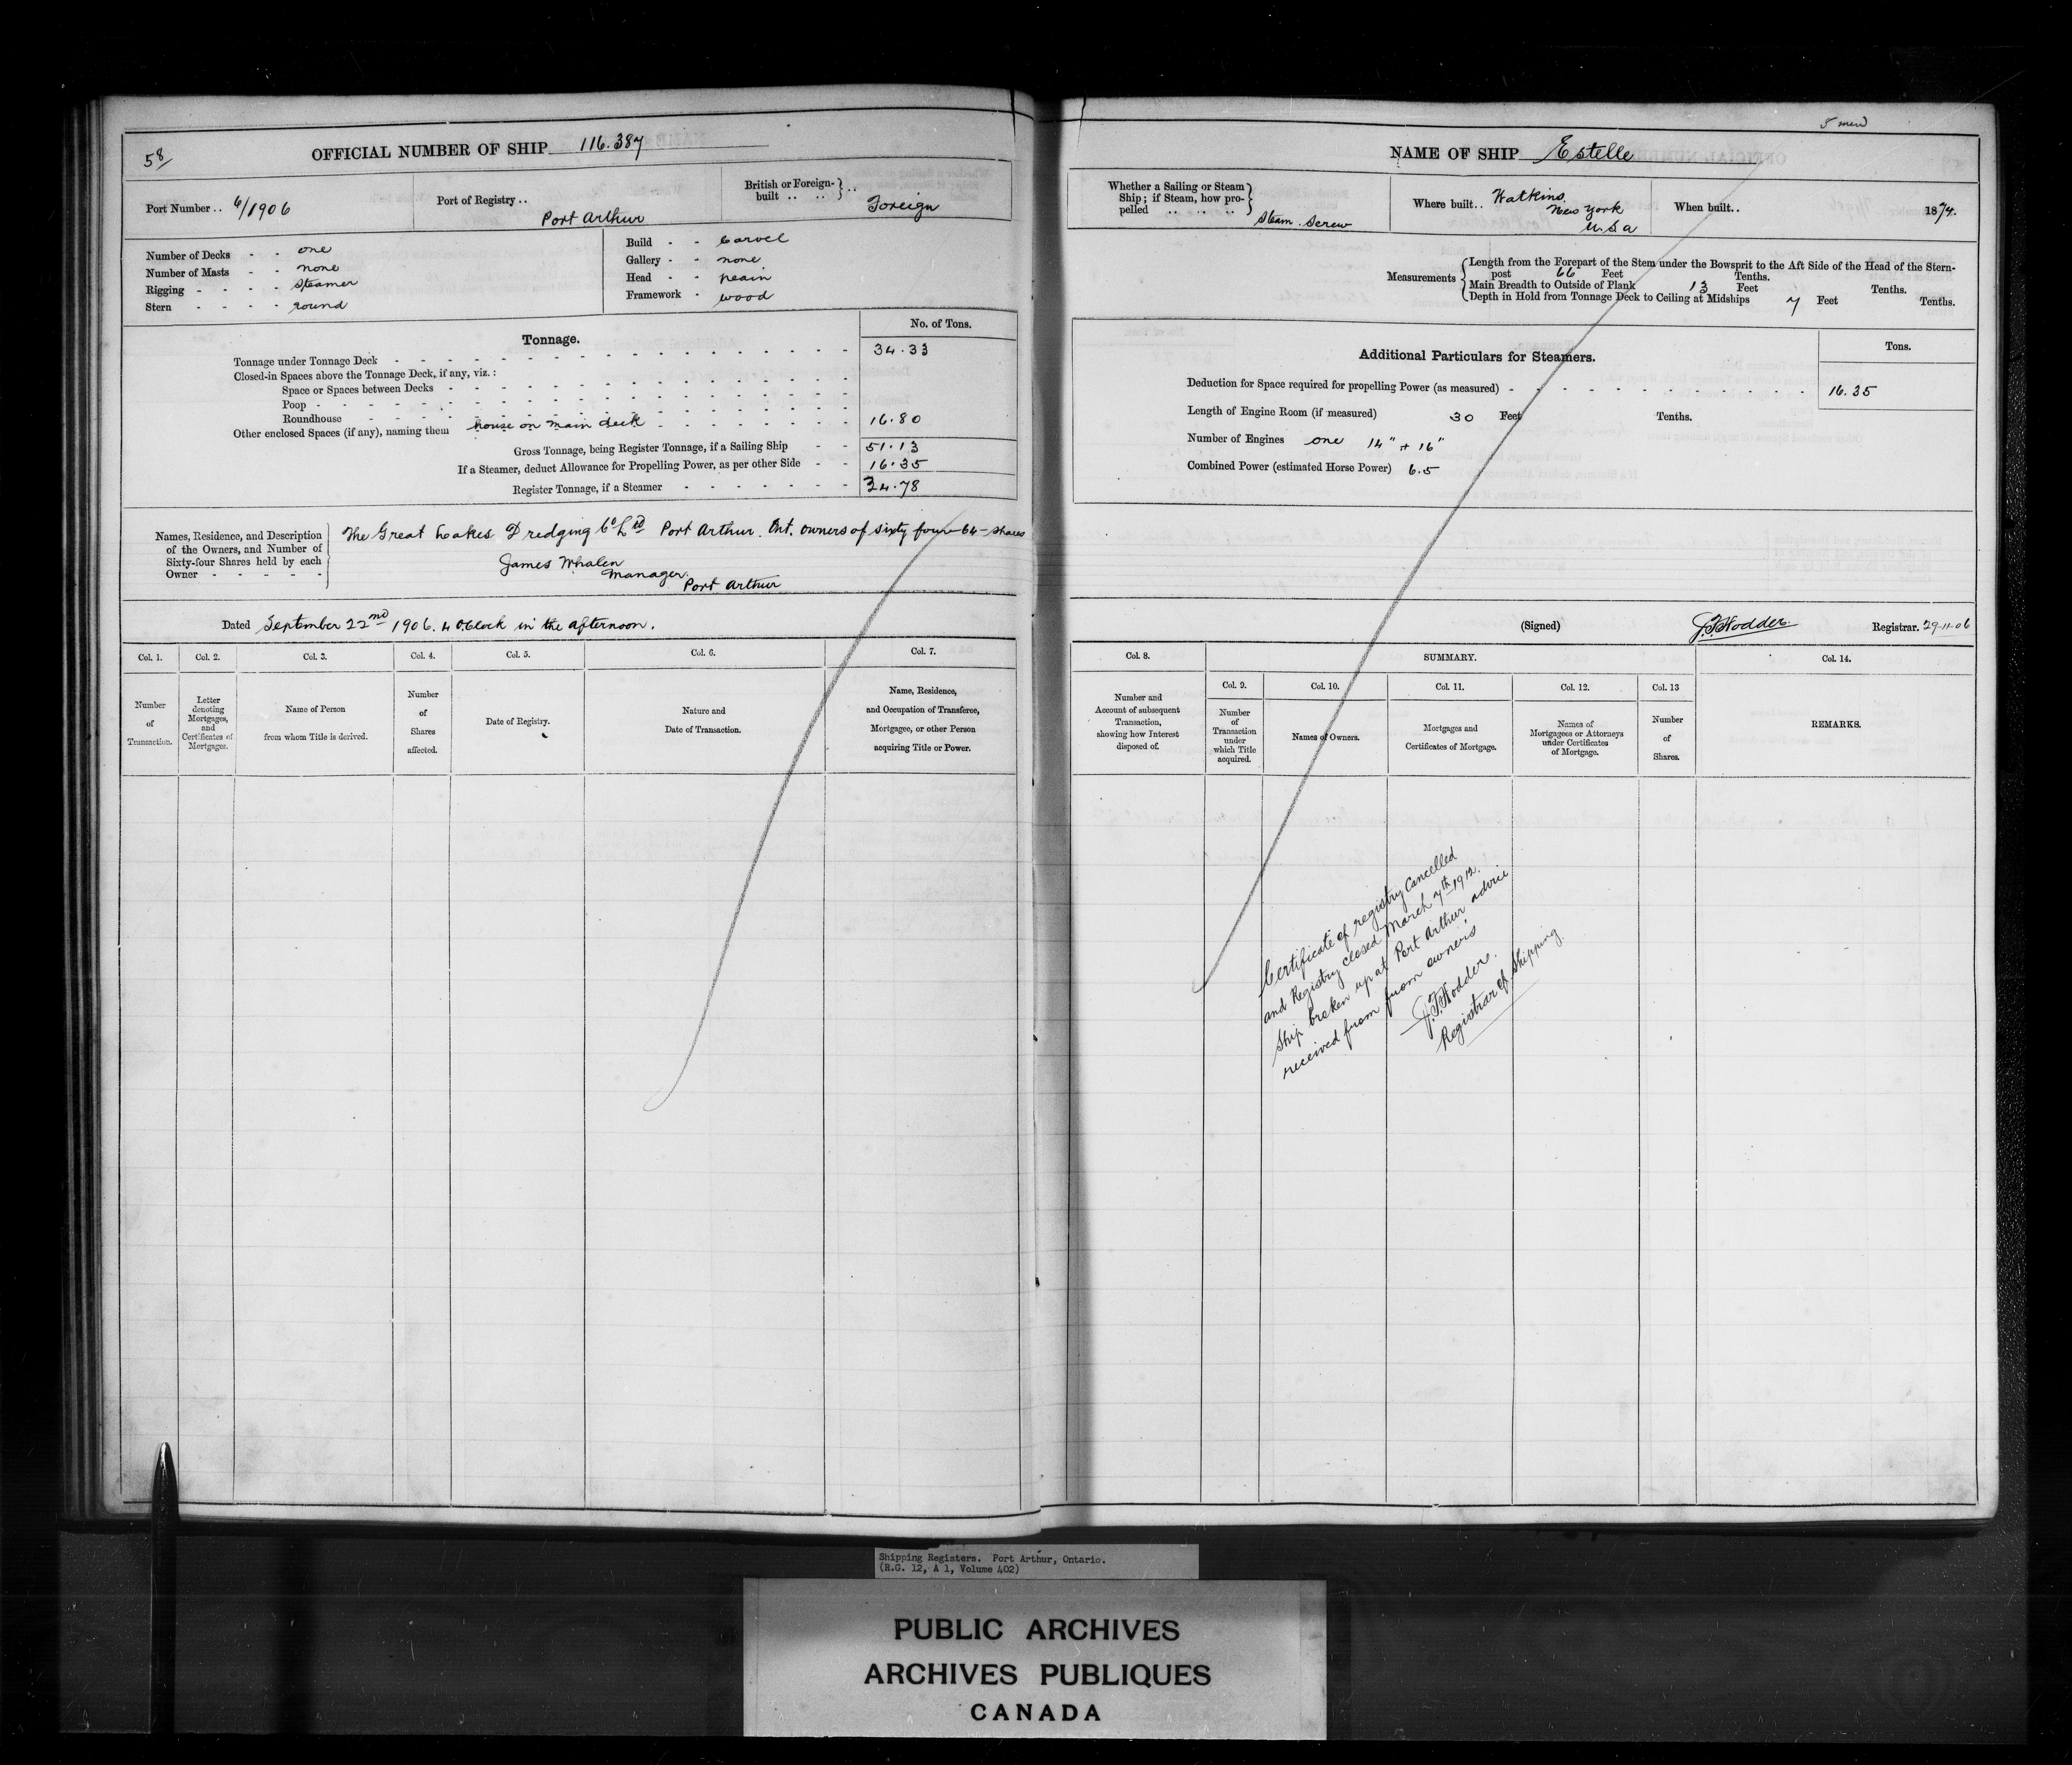 58/
OFFICIAL NUMBER OF SHIP 116.387
Port Number .. 6/1906
Port of Registry .. Port Arthur
British or Foreign-built .. .. } .. Foreign
Number of Decks - - one
Number of Masts - - none
Rigging - - - - steamer
Stern - - - - round
Build - - Carvel
Gallery - - none
Head - - plain
Framework - wood
Tonnage.
No. of Tons.
Tonnage under Tonnage Deck 34.33
Closed-in Spaces above the Tonnage Deck, if any, viz.:
Space or Spaces between Decks
Poop
Roundhouse
Other enclosed Spaces (if any), naming them house on main deck 16.80
Gross Tonnage, being Register Tonnage, if a Sailing Ship - - 51.13
If a Steamer, deduct Allowance for Propelling Power, as per other Side - - 16.35
Register Tonnage, if a Steamer 34.78
Names, Residence, and Description
of the Owners, and Number of
Sixty-four Shares held by each
Owner - - - - -
The Great Lakes Dredging Co Ltd Port Arthur. Ont. owners of sixty four-64-shares
James Whalen
Manager.
Port Arthur
Dated September 22nd 1906. 4 OClock in the afternoon.
Col. 1. Col. 2. Col. 3. Col. 4. Col. 5. Col. 6. Col. 7.
Number of Transaction.
Letter denoting Mortgages, and Certificates of Mortgages.
Name of Person from whom Title is derived.
Number of Shares affected.
Date of Registry.
Nature and Date of Transaction.
Name, Residence, and Occupation of Transferee, Mortgagee, or other Person acquiring Title or Power.
5 men
NAME OF SHIP Estelle
Whether a Sailing or Steam
Ship; if Steam, how pro-
pelled .. .. .. Steam. Screw
Where built .. Watkins.
New York
U.S.a
When built .. 1874.
Measurements
Length from the Forepart of the Stem under the Bowsprit to the Aft Side of the Head of the Stern-
post 66 Feet Tenths.
Main Breadth to Outside of Plank 13 Feet Tenths.
Depth in Hold from Tonnage Deck to Ceiling at Midships 7 Feet Tenths.
Additional Particulars for Steamers.
Tons.
Deduction for Space required for propelling Power (as measured) 16.35
Length of Engine Room (if measured) 30 Feet Tenths.
Number of Engines one 14" + 16"
Combined Power (estimated Horse Power) 6.5
(Signed) J.F. Hodder. Registrar. 29-11-06
Col. 8. SUMMARY. Col. 14.
Col. 9. Col. 10. Col. 11. Col. 12. Col. 13
Number and Account of subsequent Transaction, showing how Interest disposed of.
Number of Transaction under which Title acquired.
Names of Owners.
Mortgages and Certificates of Mortgage.
Names of Mortgagees or Attorneys under Certificates of Mortgage.
Number of Shares.
REMARKS.
Certificate of registry Cancelled
and Registry closed March 7th 1912.
Ship broken up at Port Arthur advice
received from from owners
J.F. Hodder.
Registrar of Shipping
Shipping Registers. Port Arthur, Ontario.
(R.G. 12, A 1, Volume 402)
PUBLIC ARCHIVES
ARCHIVES PUBLIQUES
CANADA